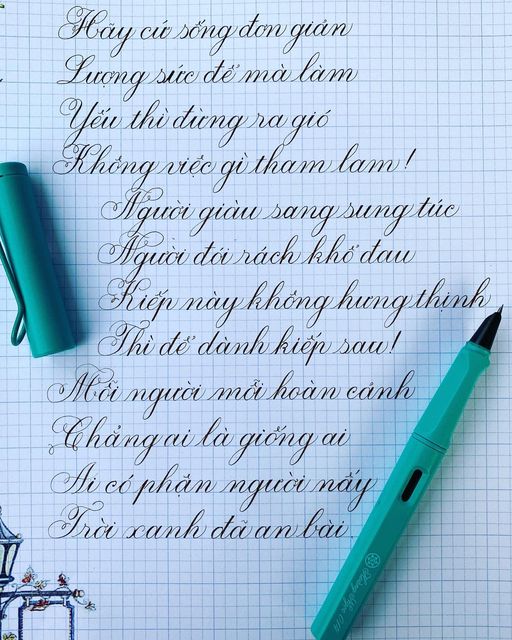 Hãy cứ sống đơn giản
Lượng sức để mà làm
Yếu thì đừng ra gió
Không việc gì tham lam!
Người giàu sang sung túc
Người đói rách khổ đau
Kiếp này không hưng thịnh
Thì để dành kiếp sau!
Mỗi người mỗi hoàn cảnh
Chẳng ai là giống ai
Ai có phận người nấy
Trời xanh đã an bài